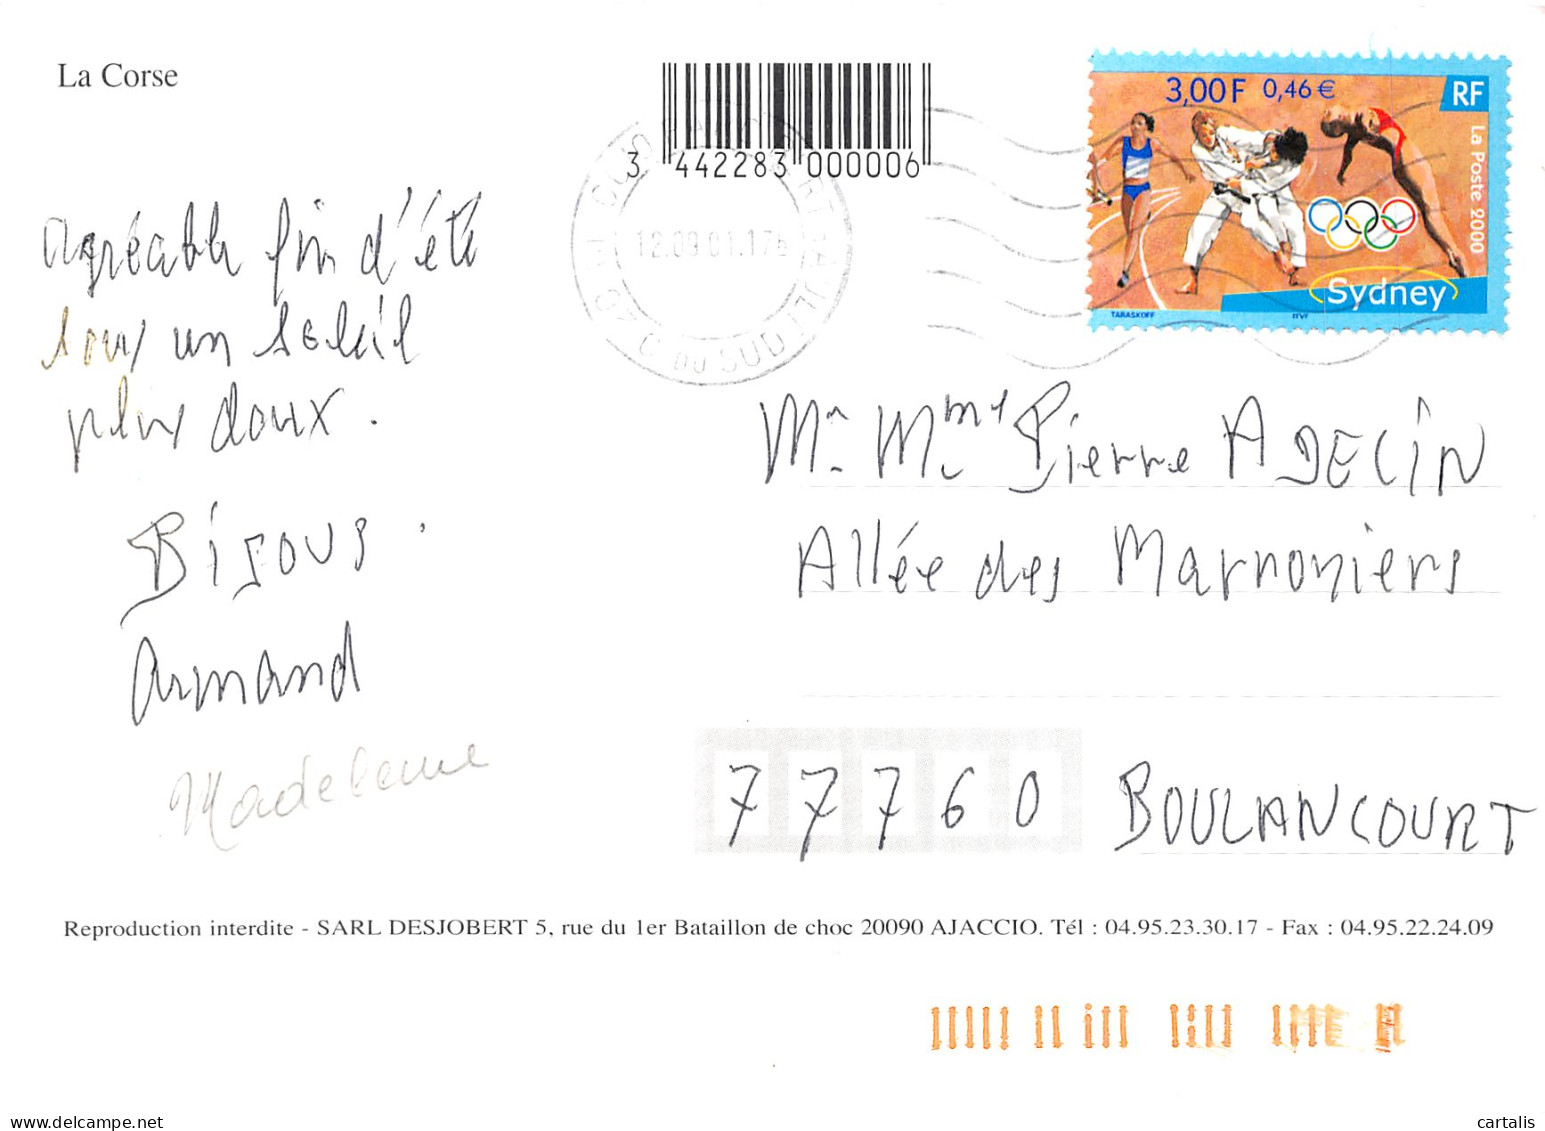 La Corse
3 442283 000006
3,00 F 0,46 €
RF
La Poste 2000
Sydney
TARASKOFF ITVF
12.09.01.17
C DU SUD
agréable fin d'été
sous un soleil
plus doux.
Bisous.
Armand
Madeleine
Mr Mme Pierre ADELIN
Allée des Marronniers
77760 BOULANCOURT
Reproduction interdite - SARL DESJOBERT 5, rue du 1er Bataillon de choc 20090 AJACCIO. Tél : 04.95.23.30.17 - Fax : 04.95.22.24.09
www.delcampe.net
cartalis